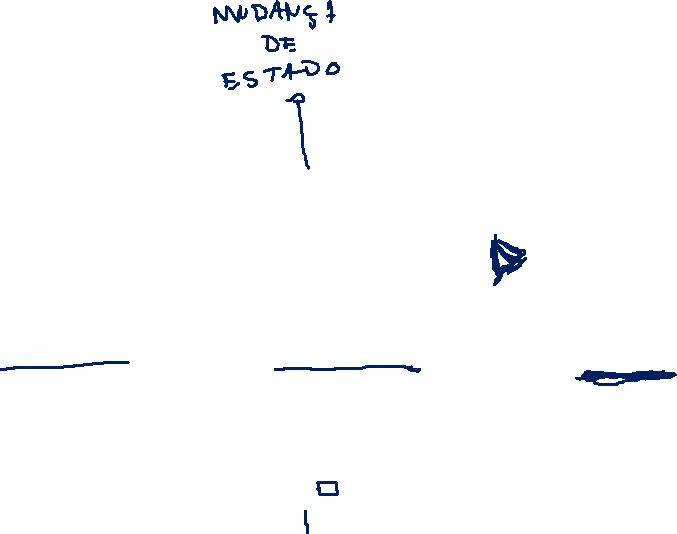 MUDANÇA
DE
ESTADO